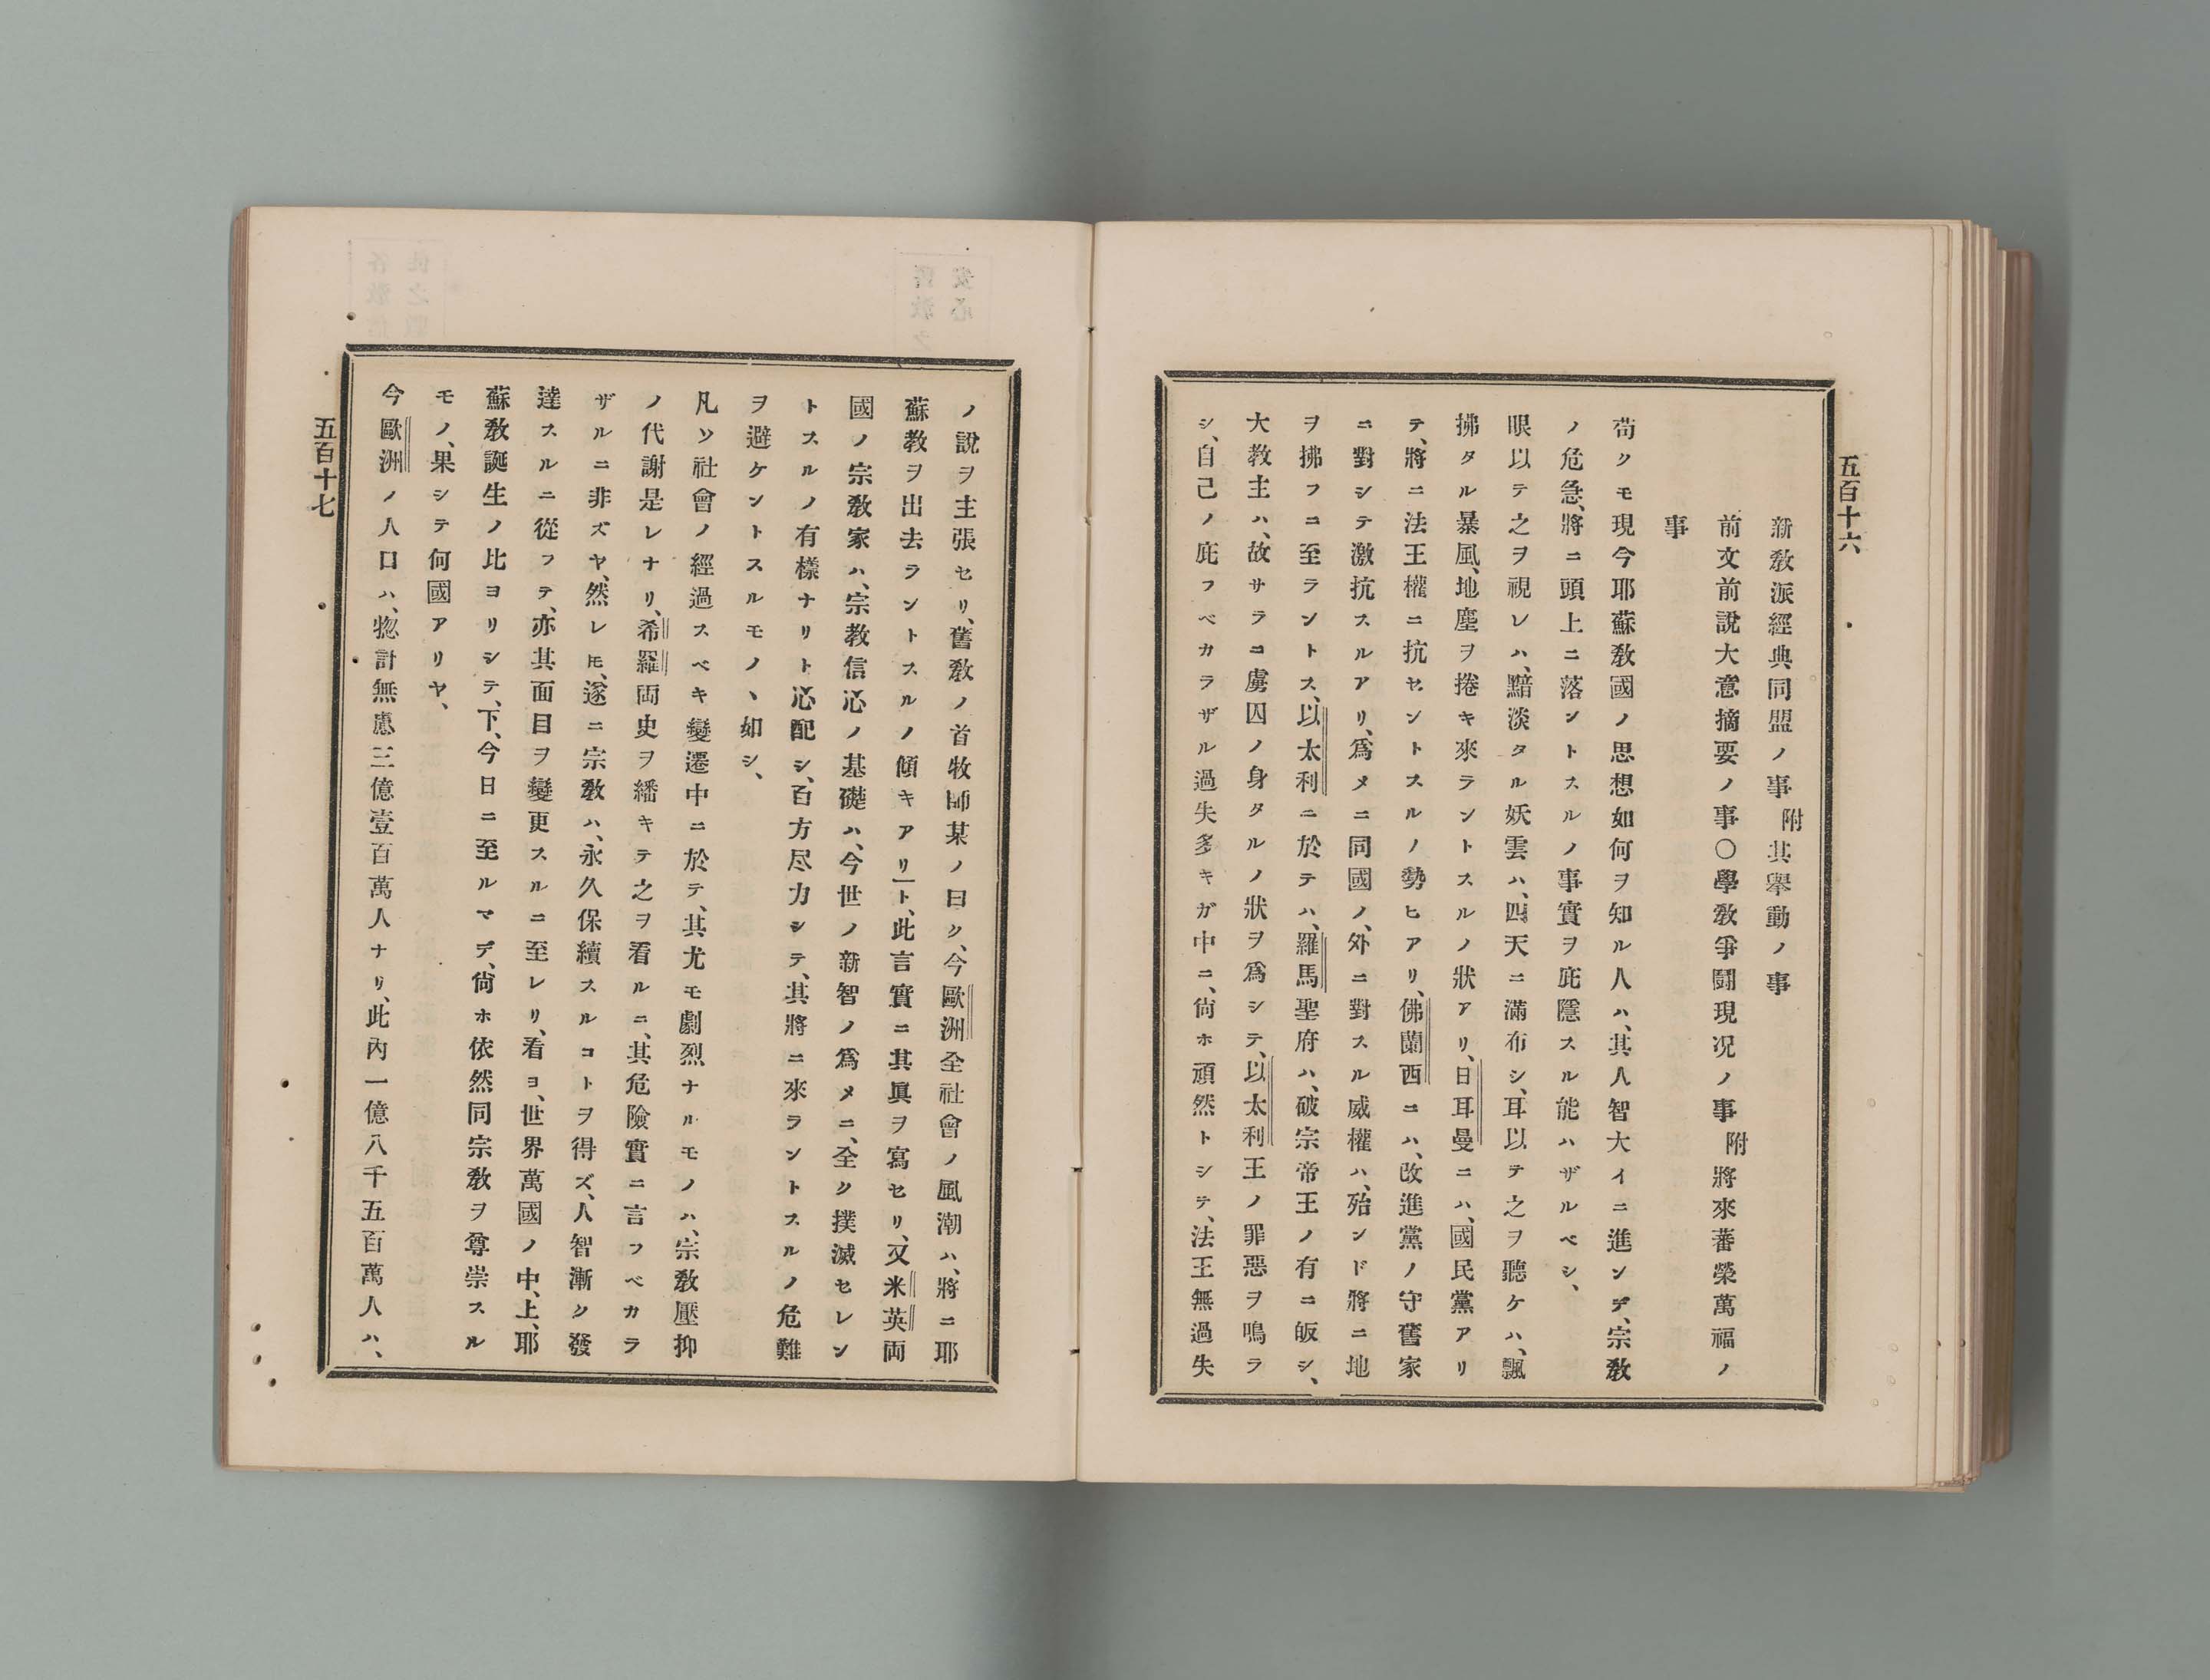 五百十六
新敎派經典同盟ノ事附其擧動ノ事
前文前說大意摘要ノ事〇學敎爭鬪現况ノ事附將來蕃榮萬福ノ
事
苟クモ現今耶蘇敎國ノ思想如何ヲ知ル人ハ、其人智大イニ進ンデ、宗敎
ノ危急、將ニ頭上ニ落ントスルノ事實ヲ庇隱スル能ハザルベシ、
眼以テ之ヲ視レハ、黯淡タル妖雲ハ、四天ニ滿布シ、耳以テ之ヲ聽ケハ、飄
拂タル暴風、地塵ヲ捲キ來ラントスルノ狀アリ、日耳曼ニハ、國民黨アリ
テ、將ニ法王權ニ抗センドスルノ勢ヒアリ、佛蘭西ニハ、改進黨ノ守舊家
ニ對シテ激抗スルアリ、爲メニ同國ノ、外ニ對スル威權ハ、殆ンド將ニ地
ヲ拂フニ至ラントス、以太利ニ於テハ、羅馬聖府ハ、破宗帝王ノ有ニ皈シ、
大敎主ハ、故サラニ虜囚ノ身タルノ狀ヲ爲シテ、以太利王ノ罪惡ヲ鳴ラ
シ、自己ノ庇フベカラザル過失多キガ中ニ、尙ホ頑然トシテ、法王無過失
ノ說ヲ主張セリ、舊敎ノ首牧師某ノ曰ク、今歐洲全社會ノ風潮ハ、將ニ耶
蘇敎ヲ出去ラントスルノ傾キアリ」ト、此言實ニ其眞ヲ寫セリ、又米英両
國ノ宗敎家ハ、宗敎信心ノ基礎ハ、今世ノ新智ノ爲メニ、全ク撲滅セレン
トスルノ有樣ナリト心配シ、百方尽力シテ、其將ニ來ラントスルノ危難
ヲ避ケントスルモノヽ如シ、
凡ソ社會ノ經過スベキ變遷中ニ於テ、其尤モ劇烈ナルモノハ、宗敎壓抑
ノ代謝是レナリ、希羅両史ヲ繙キテ之ヲ看ルニ、其危險實ニ言フベカラ
ザルニ非ズヤ、然レ𪜈、遂ニ宗敎ハ、永久保續スルコトヲ得ズ、人智漸ク發
達スルニ從フテ、亦其面目ヲ變更スルニ至レリ、看ヨ、世界萬國ノ中、上、耶
蘇敎誕生ノ比ヨリシテ、下、今日ニ至ルマデ、尙ホ依然同宗敎ヲ尊崇スル
モノ、果シテ何國アリヤ、
今歐洲ノ人口ハ、惣計無慮三億壹百萬人ナリ、此內一億八千五百萬人ハ、
五百十七